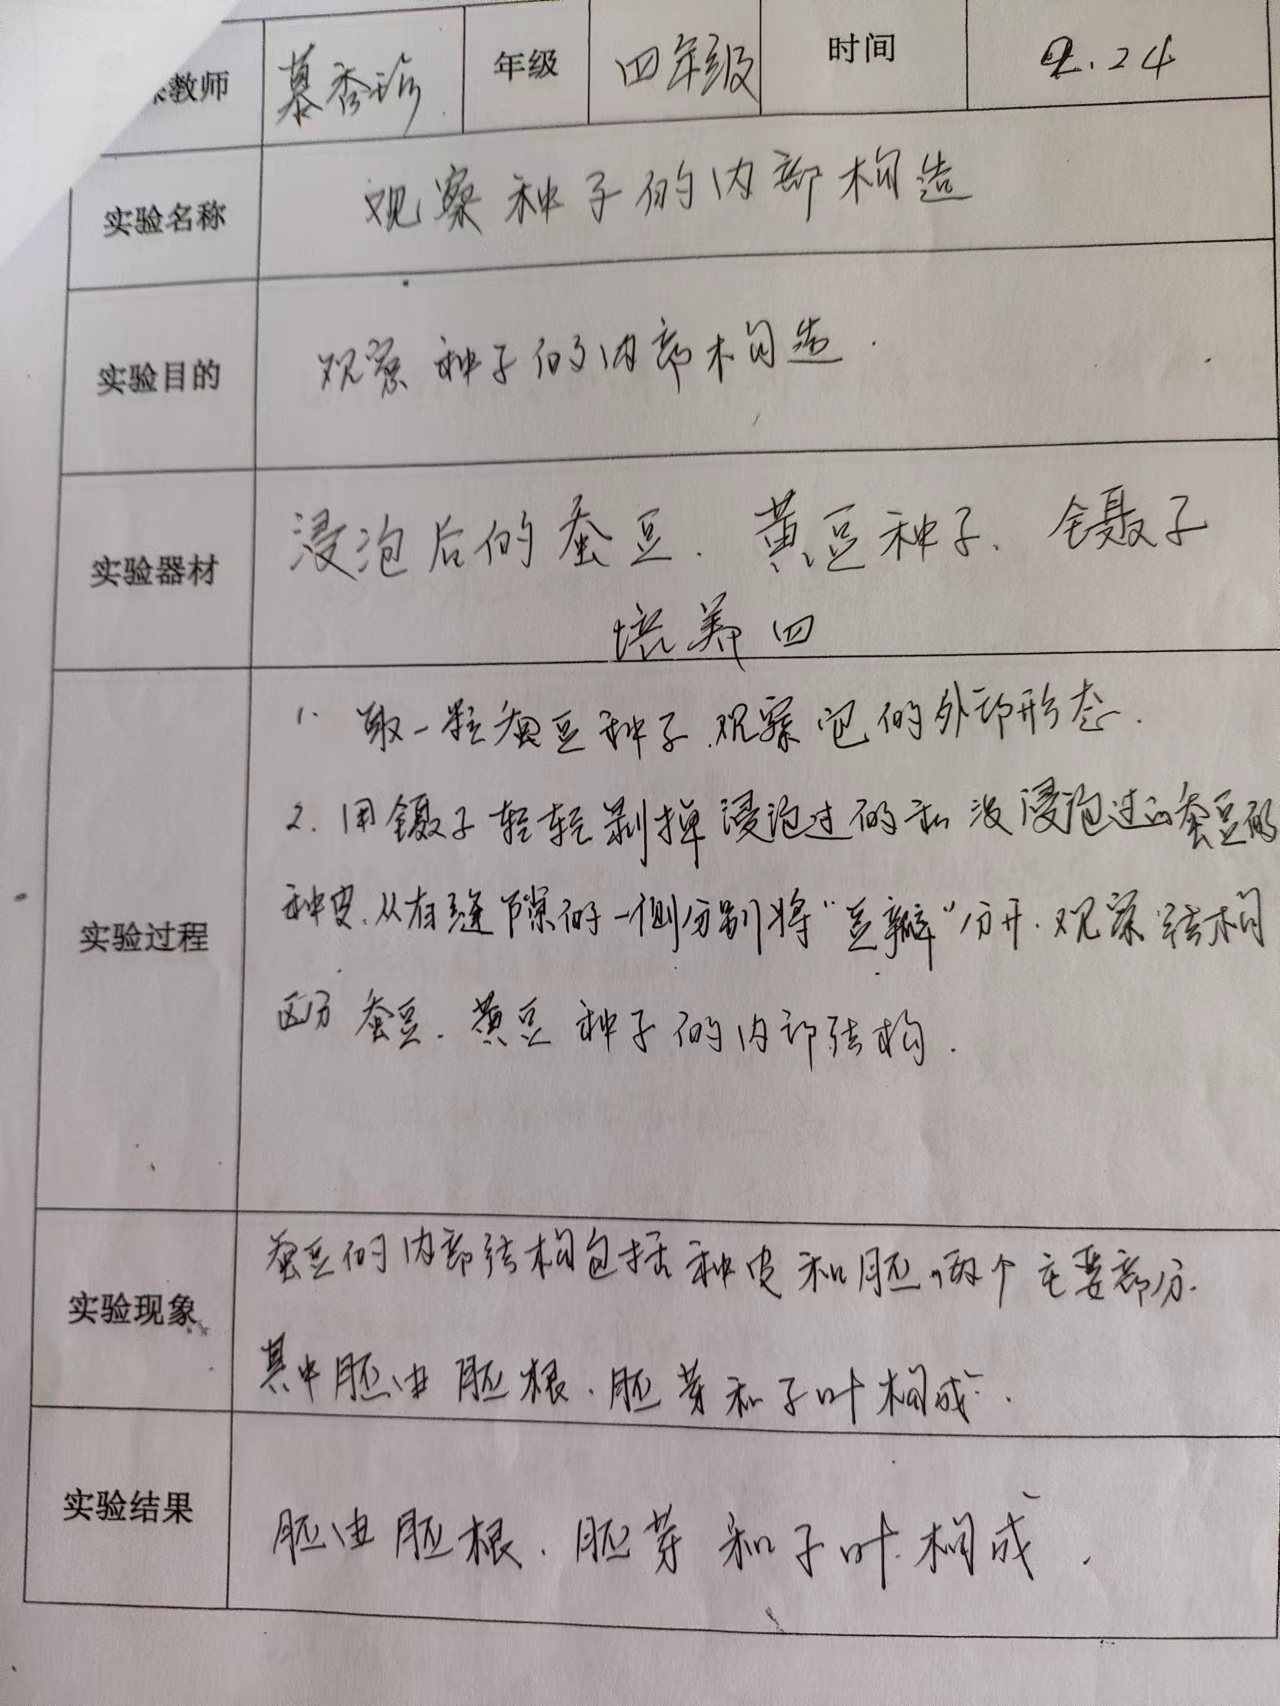 教师 慕秀珍 年级 四年级 时间 2.24
实验名称 观察种子的内部构造
实验目的 观察种子的内部构造.
实验器材 浸泡后的蚕豆、黄豆种子、镊子
培养皿
实验过程
1. 取一粒蚕豆种子.观察它的外部形态.
2. 用镊子轻轻剥掉浸泡过的和没浸泡过的蚕豆的
种皮.从有缝隙的一侧分别将“豆瓣”分开.观察结构
区分蚕豆、黄豆种子的内部结构.
实验现象
蚕豆的内部结构包括种皮和胚,两个主要部分.
其中胚由胚根、胚芽和子叶构成.
实验结果 胚由胚根、胚芽和子叶构成.